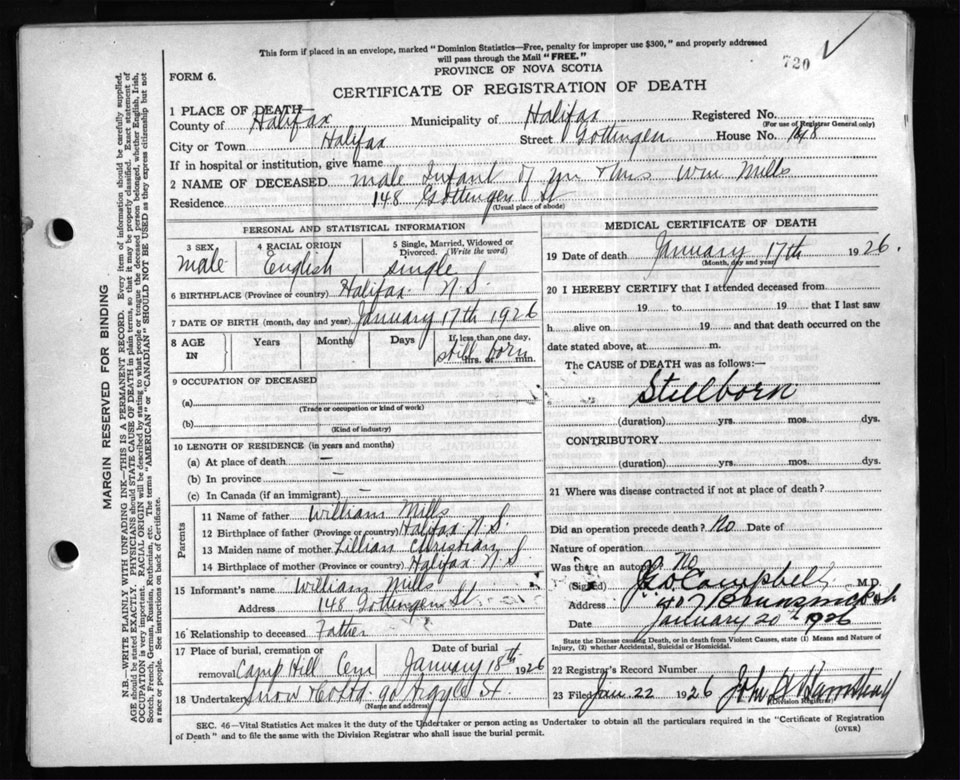 This form if placed in an envelope, marked "Dominion Statistics—Free, penalty for improper use $300," and properly addressed
will pass through the Mail "FREE."
720
FORM 6.
PROVINCE OF NOVA SCOTIA
CERTIFICATE OF REGISTRATION OF DEATH
1 PLACE OF DEATH—
County of Halifax Municipality of Halifax Registered No.
(For use of Registrar General only)
City or Town Halifax Street Gottingen House No. 148
If in hospital or institution, give name
2 NAME OF DECEASED Male Infant of Mr & Mrs Wm Mills
Residence 148 Gottingen St
(Usual place of abode)
PERSONAL AND STATISTICAL INFORMATION
3 SEX 4 RACIAL ORIGIN 5 Single, Married, Widowed or
Divorced. (Write the word)
Male English Single
6 BIRTHPLACE (Province or country) Halifax N S.
7 DATE OF BIRTH (month, day and year) January 17th 1926
8 AGE IN Years Months Days If less than one day,
still born hrs. or min.
9 OCCUPATION OF DECEASED
(a)
(Trade or occupation or kind of work)
(b)
(Kind of industry)
10 LENGTH OF RESIDENCE (in years and months)
(a) At place of death —
(b) In province —
(c) In Canada (if an immigrant) —
Parents
11 Name of father William Mills
12 Birthplace of father (Province or country) Halifax N.S.
13 Maiden name of mother Lillian Christian
14 Birthplace of mother (Province or country) Halifax N S
15 Informant's name William Mills
Address 148 Gottingen St.
16 Relationship to deceased Father
17 Place of burial, cremation or Date of burial
removal Camp Hill Cem January 18th 1926
18 Undertaker Snow & Co Ltd. 90 Argyle St.
(Name and address)
MEDICAL CERTIFICATE OF DEATH
19 Date of death January 17th 1926.
(Month, day and year)
20 I HEREBY CERTIFY that I attended deceased from
19 to 19 that I last saw
h alive on 19 and that death occurred on the
date stated above, at m.
The CAUSE OF DEATH was as follows:—
Stillborn
(duration) yrs. mos. dys.
CONTRIBUTORY
(duration) yrs. mos. dys.
21 Where was disease contracted if not at place of death?
Did an operation precede death? No Date of
Nature of operation
Was there an autopsy? No
(Signed) Campbell M.D.
Address 407 Brunswick St
Date January 20th 1926
State the Disease causing Death, or in death from Violent Causes, state (1) Means and Nature of
Injury, (2) whether Accidental, Suicidal or Homicidal.
22 Registrar's Record Number
23 Filed Jan 22 1926 John
(Division Registrar)
SEC. 46—Vital Statistics Act makes it the duty of the Undertaker or person acting as Undertaker to obtain all the particulars required in the "Certificate of Registration
of Death" and to file the same with the Division Registrar who shall issue the burial permit.
(OVER)
MARGIN RESERVED FOR BINDING
N.B.—WRITE PLAINLY WITH UNFADING INK—THIS IS A PERMANENT RECORD. Every item of information should be carefully supplied.
AGE should be stated EXACTLY. PHYSICIANS should STATE CAUSE OF DEATH in plain terms, so that it may be properly classified. Exact statement of
OCCUPATION is very important. RACIAL ORIGIN will be described by stating to what people or tongue the deceased person belonged, whether English, Irish,
Scotch, French, German, Russian, Ruthenian, etc. The terms "AMERICAN" or "CANADIAN" SHOULD NOT BE USED as they express citizenship but not
a race or people. See instructions on back of Certificate.